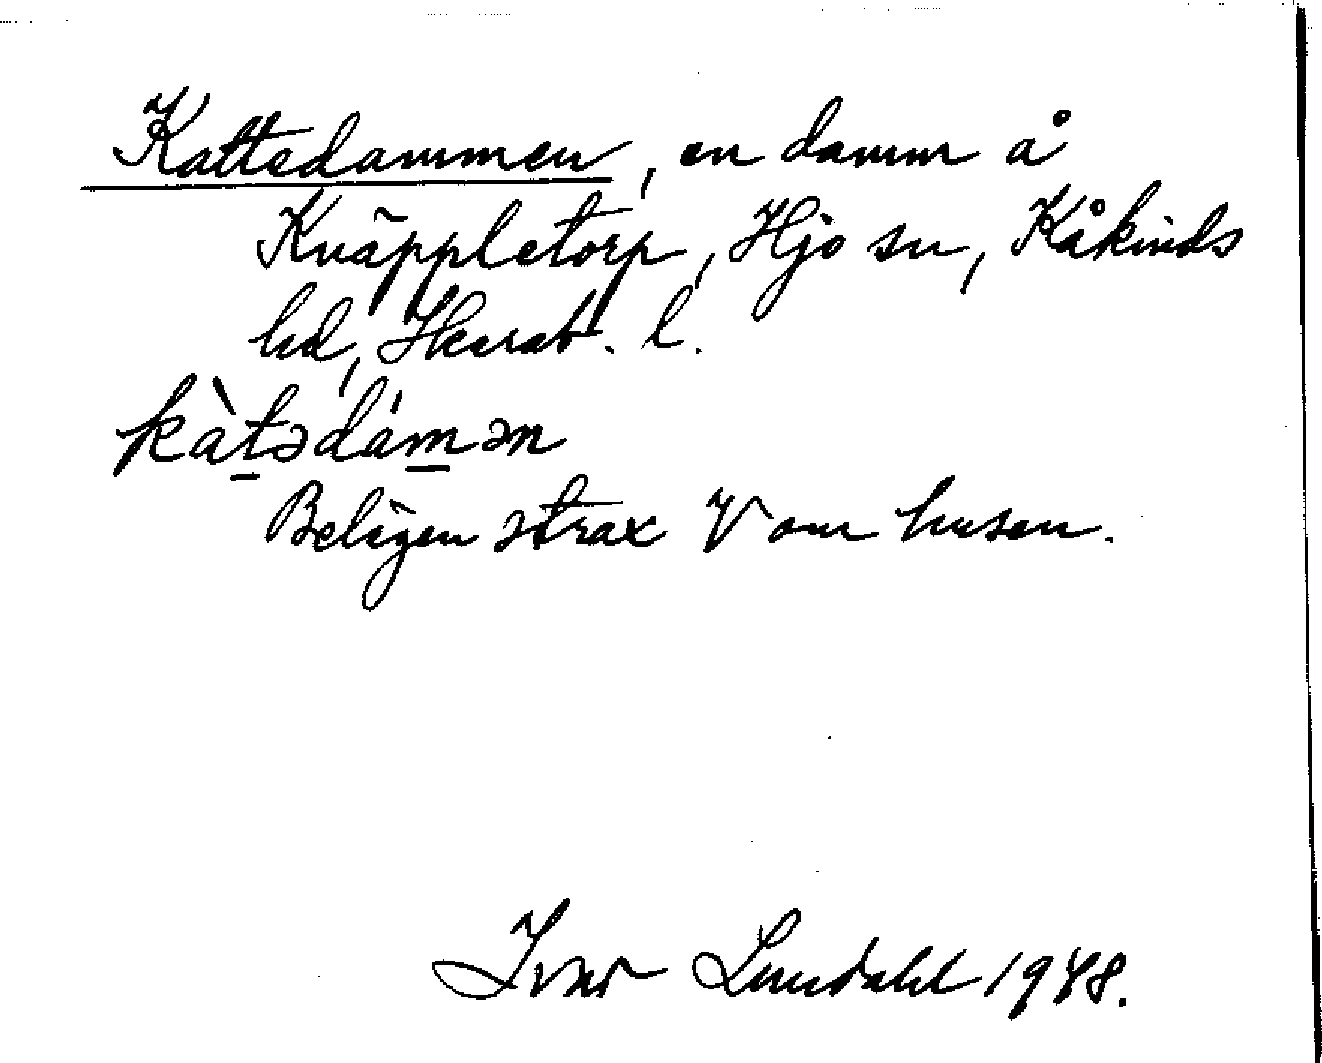 Kattedammen, en damm å
Knäppletorp, Hjo sn, Kåkinds
hd, Skarab. l.
kàt̲ədám̲ən
Belägen strax V om husen.
Ivar Lundahl 1948.